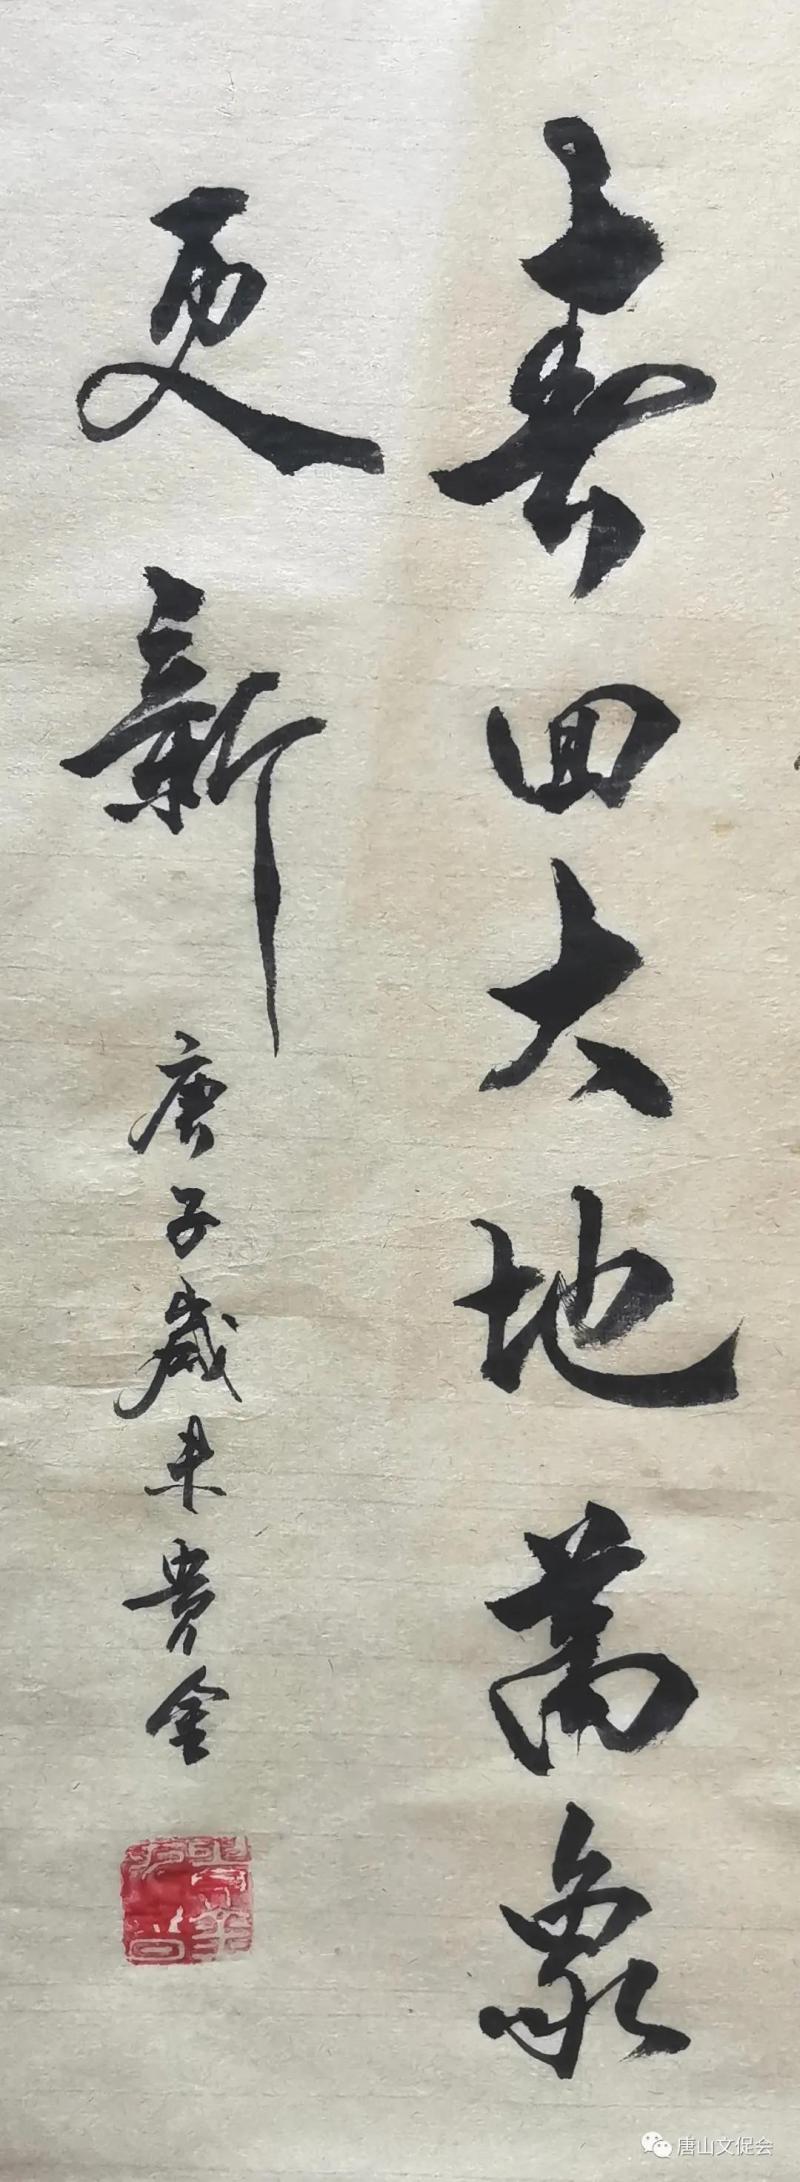 春回大地萬象
更新
庚子歲朱貴金
唐山文促会